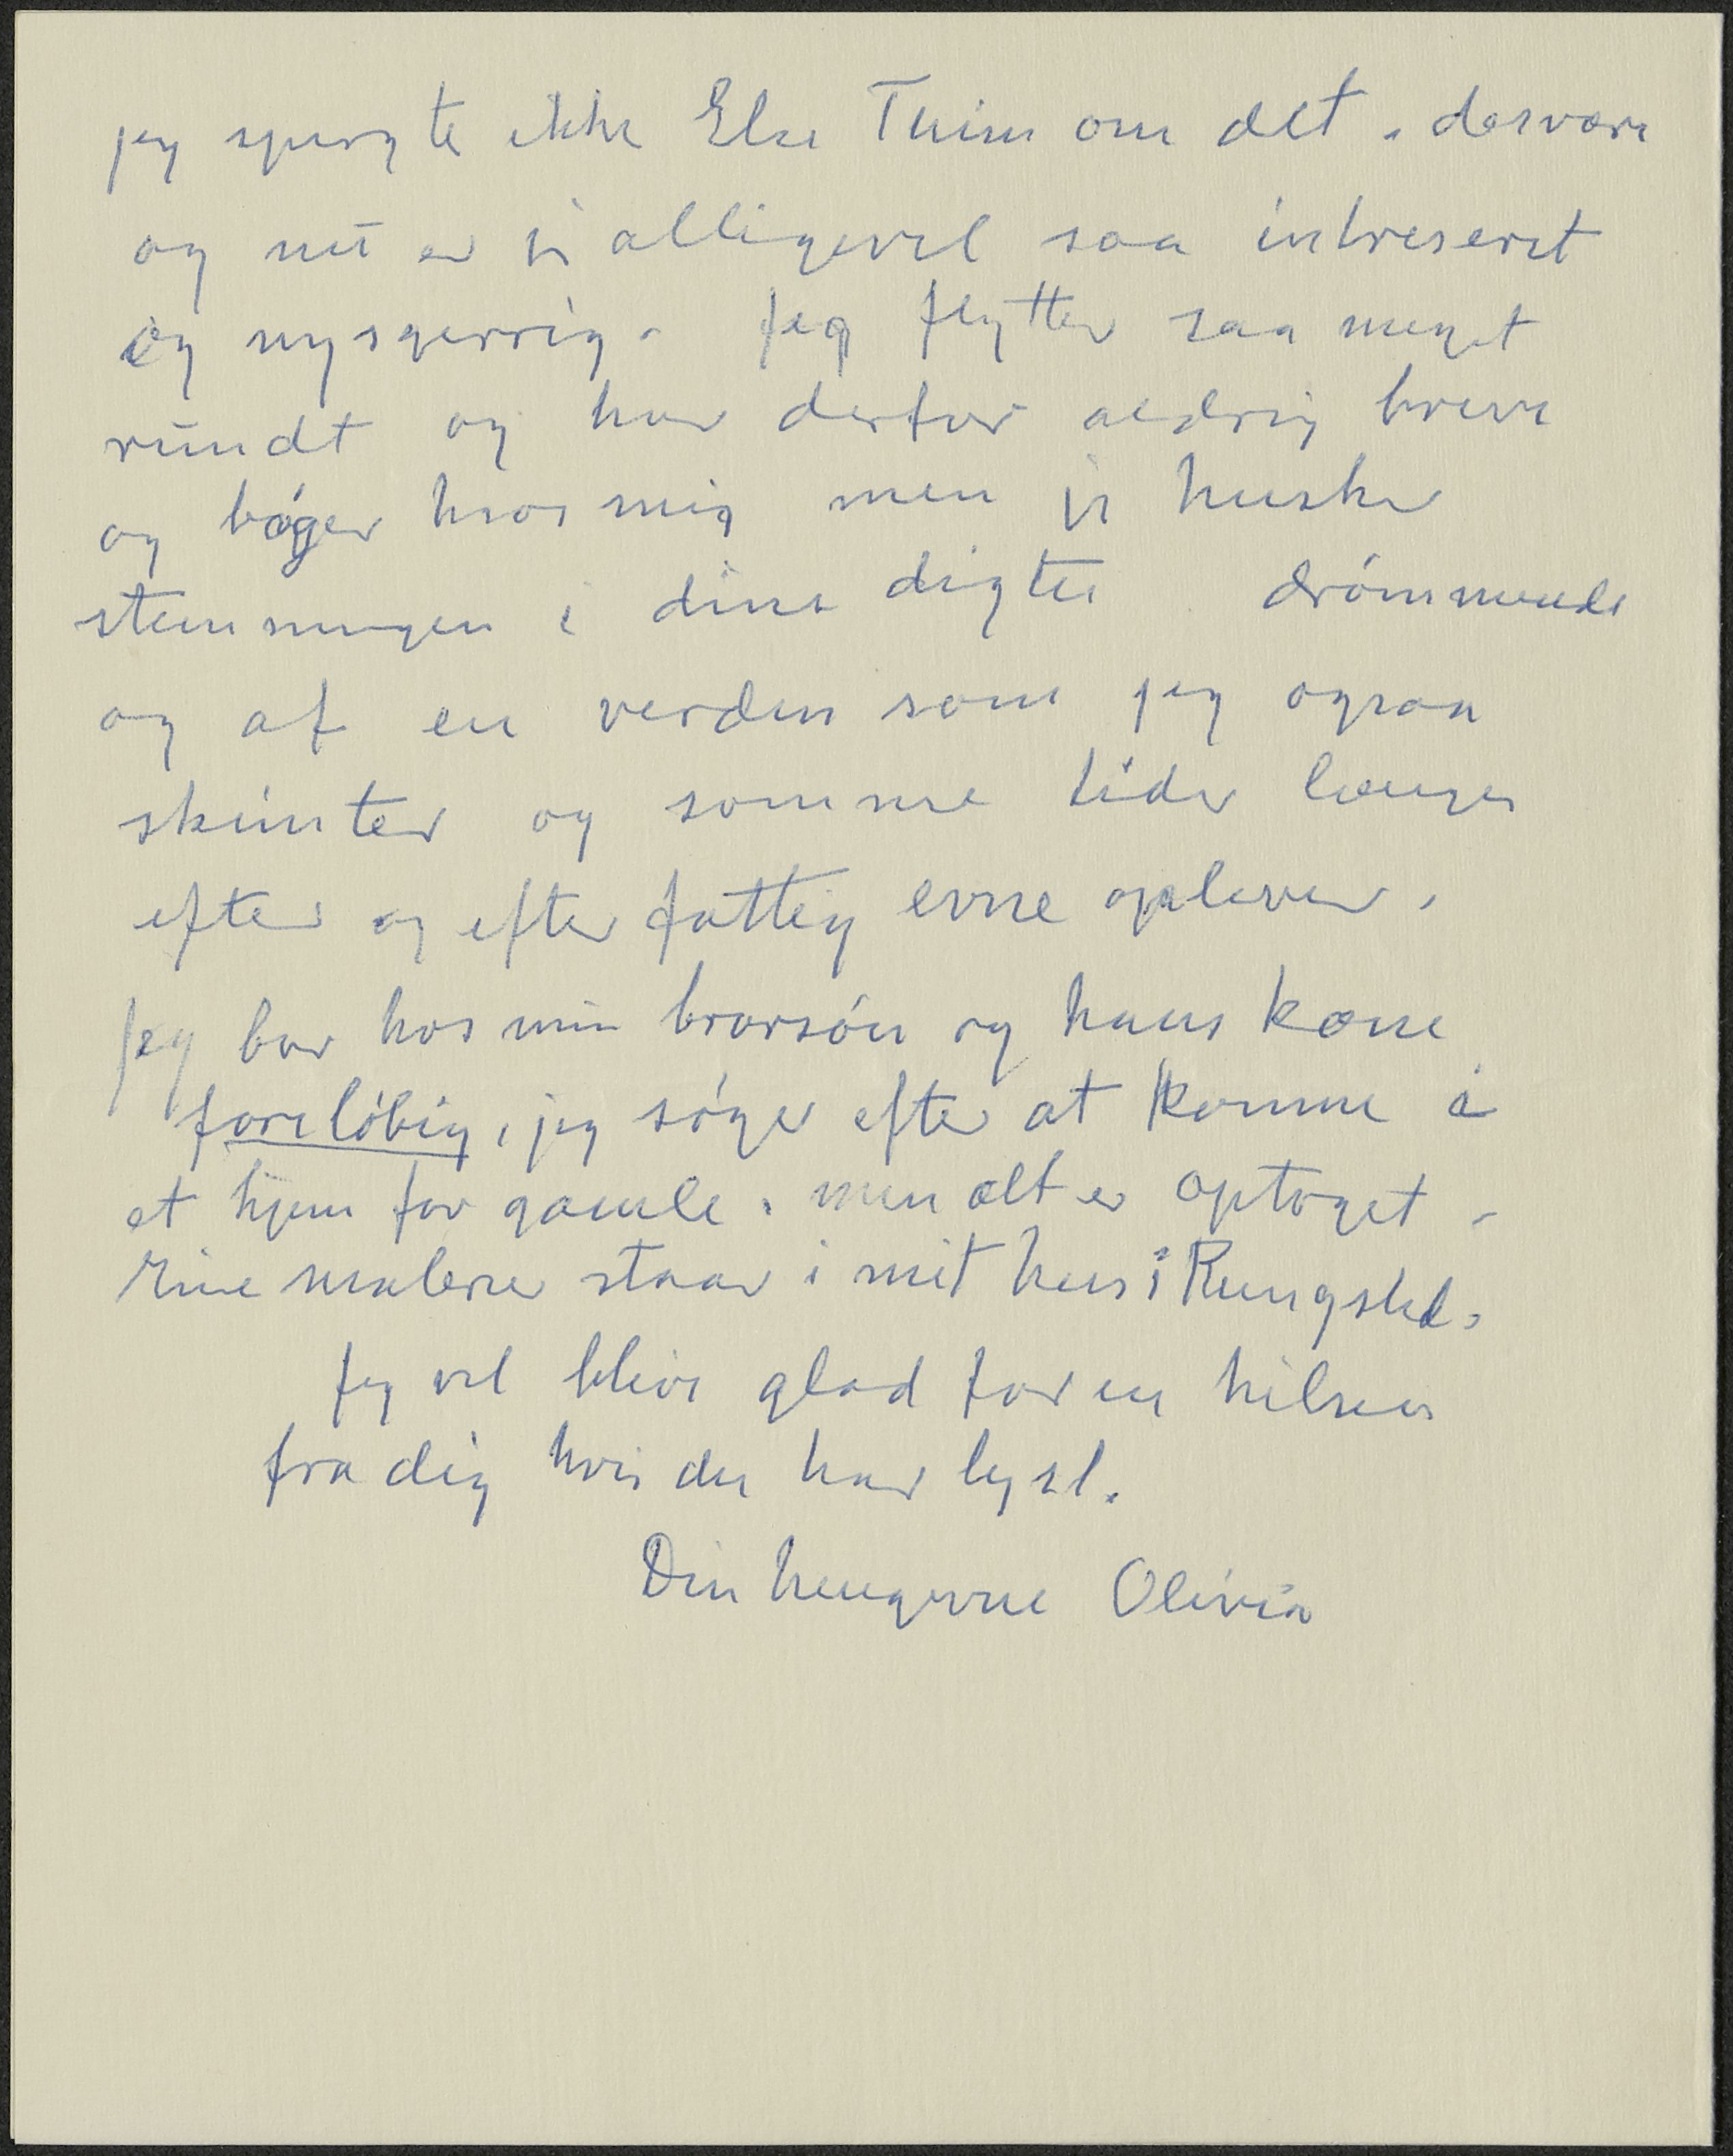 jeg spurgte ikke Else Thim om det. desværre
og nu er jeg alligevel saa intreseret
og nysgerrig. Jeg flytter saa meget
rundt og har derfor aldrig breve
og bøger hos mig men jeg husker
stemningen i dine digte drømmende
og af en verden som jeg ogsaa
skimter og somme tider længes
efter og efter fattig evne oplever.
Jeg bor hos min brorsøn og hans kone
foreløbig, jeg søger efter at komme i
et hjem for gamle. men alt er optaget.
Mine malerier staar i mit hus i Rungsted.
Jeg vil blive glad for en hilsen
fra dig hvis du har lyst.
Din hengivne Olivia